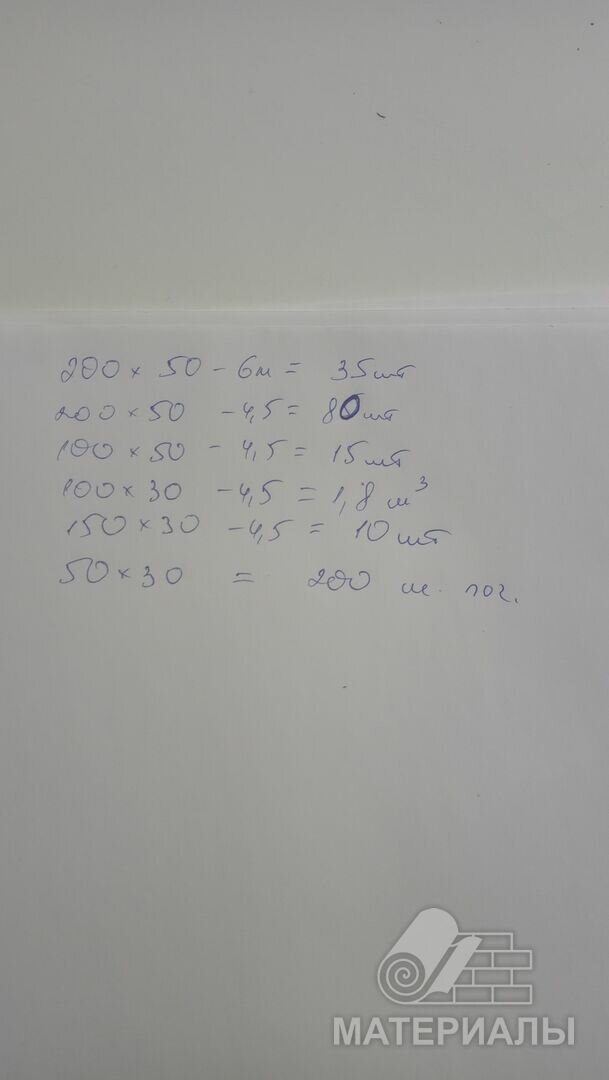 200 × 50 - 6м = 35 шт
200 × 50 - 4,5 = 80 шт
100 × 50 - 4,5 = 15 шт
100 × 30 - 4,5 = 1,8 м³
150 × 30 - 4,5 = 10 шт
50 × 30 = 200 м. пог.
МАТЕРИАЛЫ